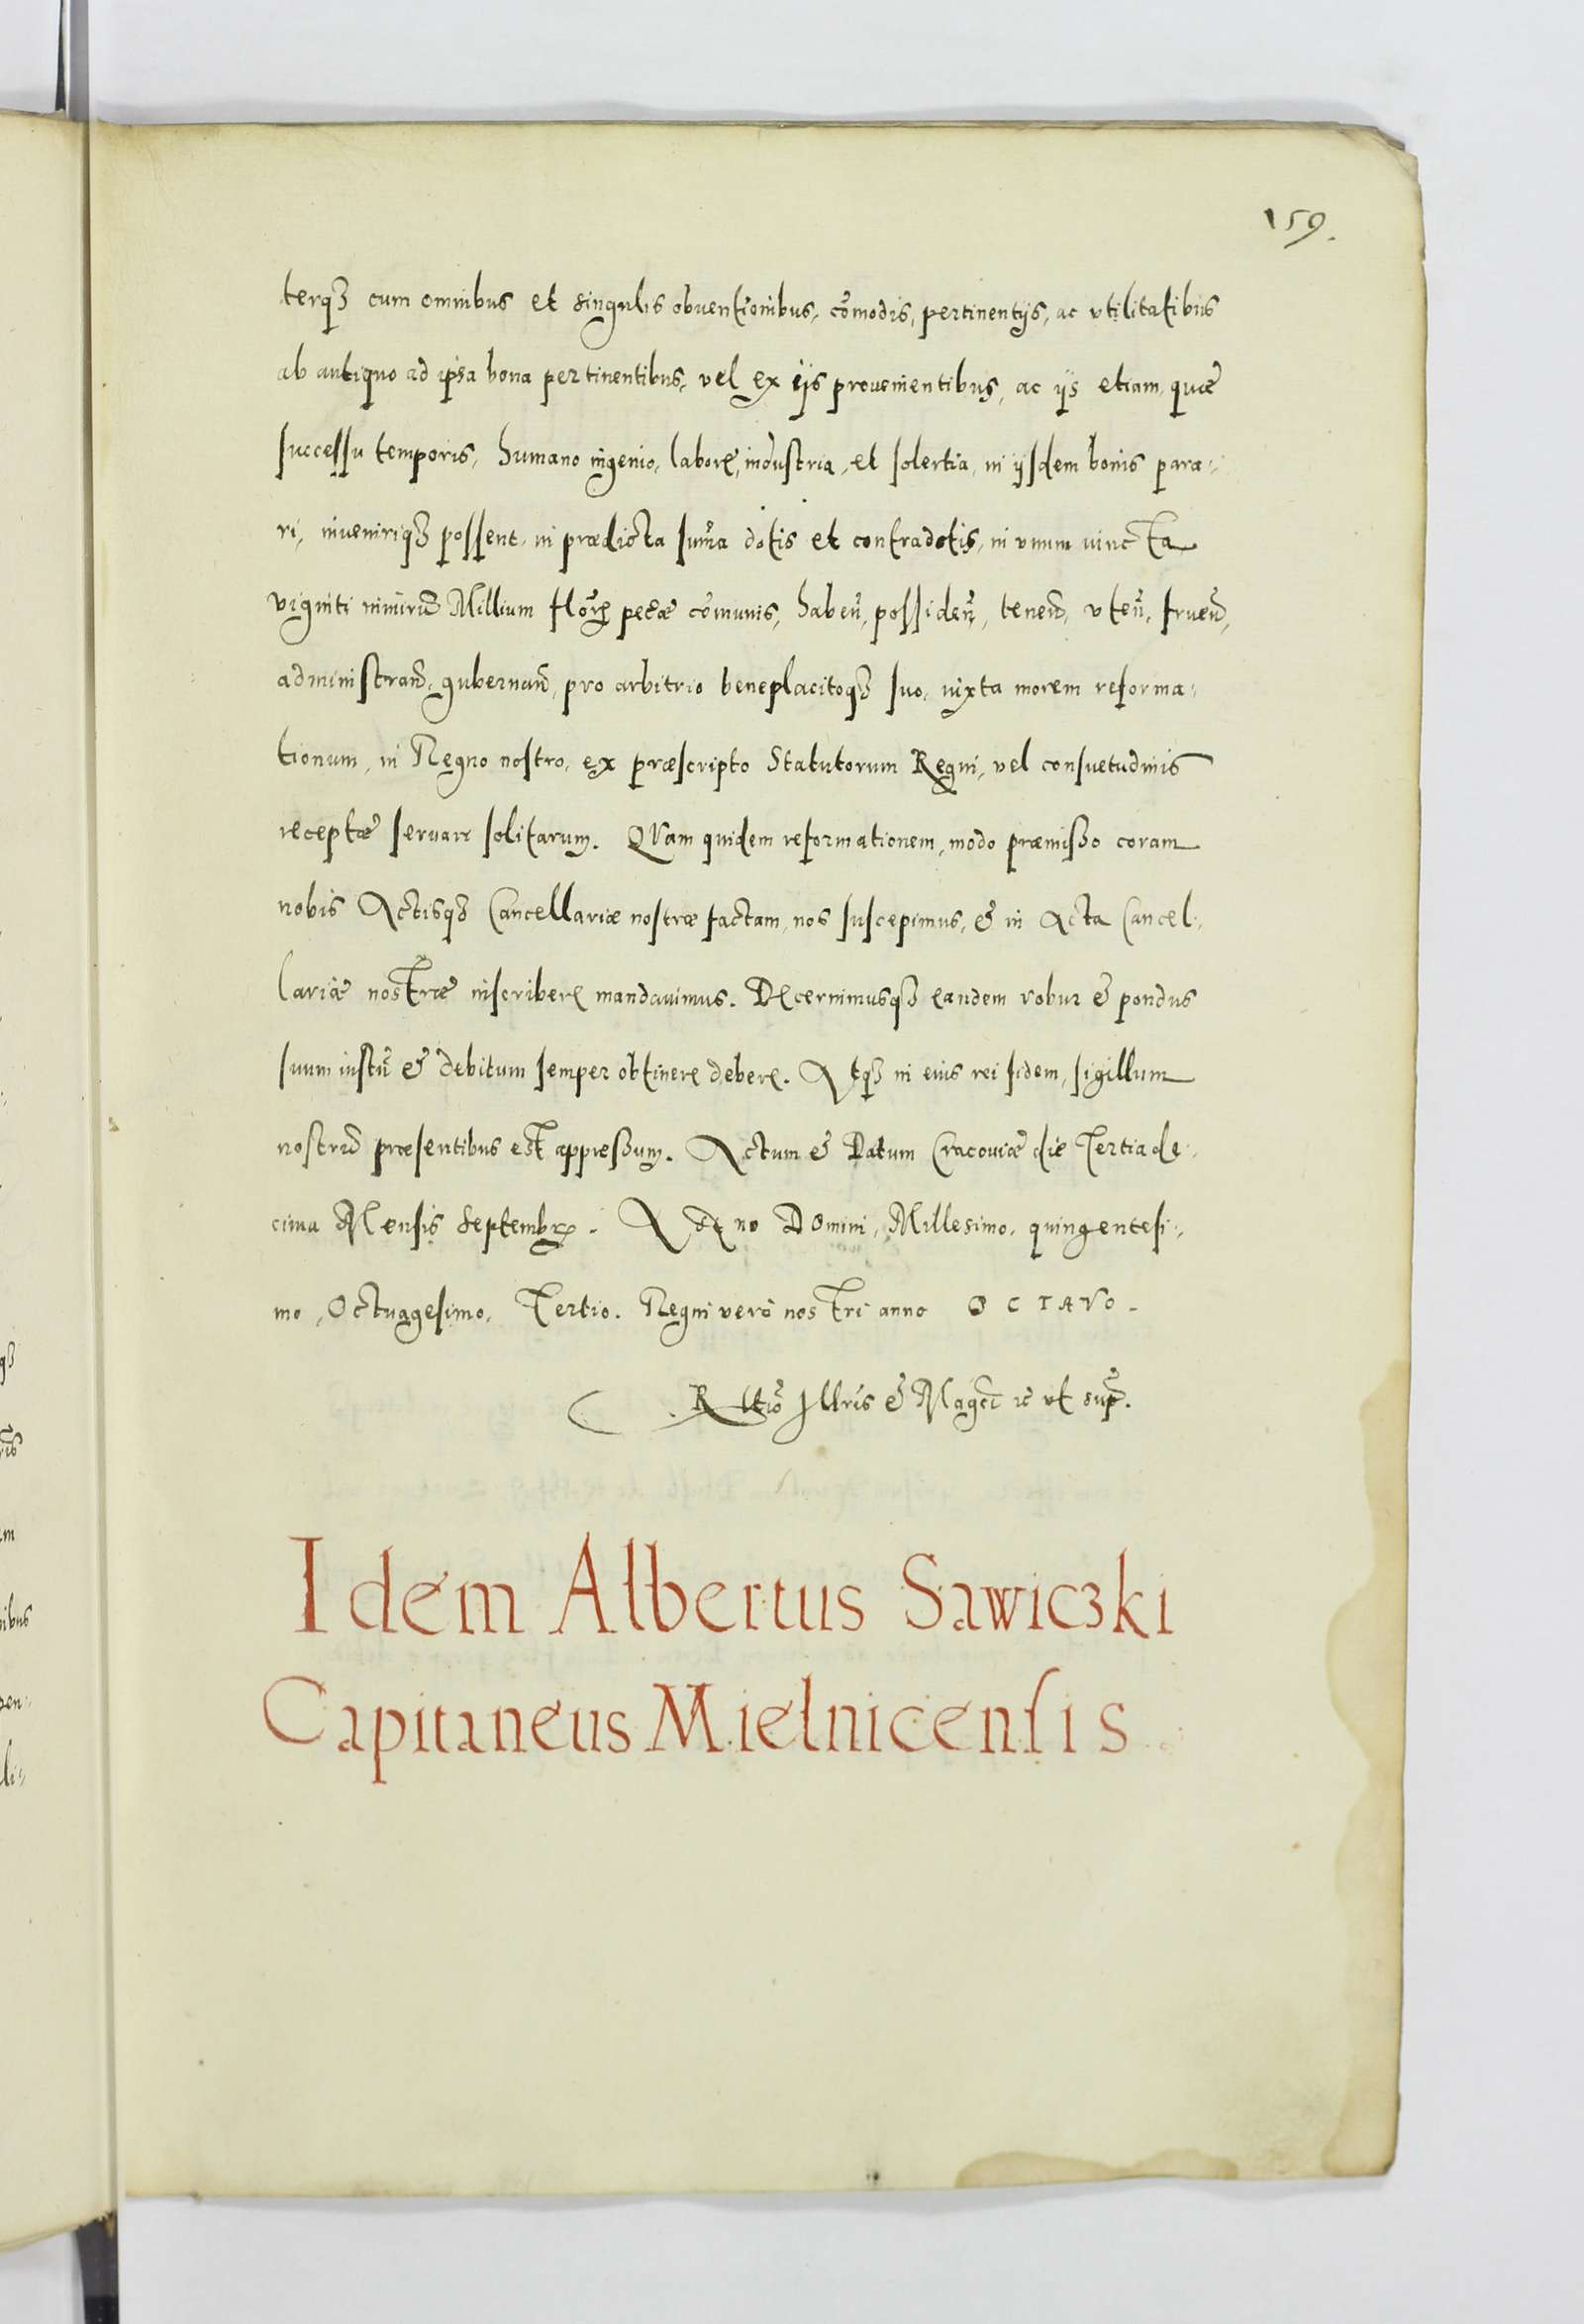 159.
terq3 cum omnibus et singulis obuentionibus, cõmodis, pertinentijs, ac vtilitatibus
ab antiquo ad ipsa bona pertinentibus, vel ex ijs prouenientibus, ac ijs etiam, quæ
successu temporis, humano ingenio, labore, industria, et solertia, in ijsdem bonis para-
ri, inueniriq3 possent, in prædicta sum̃a dotis et contradotis, in vnum vincta
viginti nimirũ Millium flor̃ pecũæ cõmunis, habeñ, possideñ, teneñ, vteñ, frueñ,
administrañ, gubernañ, pro arbitrio beneplacitoq3 suo, iuxta morem reforma-
tionum, in Regno nostro, ex præscripto Statutorum Regni, vel consuetudinis
receptæ servari solitarum. QVam quidem reformationem, modo præmisso coram
nobis Actisq3 Cancellariæ nostræ factam, nos suscepimus, & in Acta Cancel-
lariæ nostræ inscribere mandauimus. Decernimusq3 eandem robur & pondus
suum iustũ & debitum semper obtinere debere. Atq3 in eius rei fidem, sigillum
nostrũ præsentibus est appressum. Actum & Datum Cracouiæ die Tertia de-
cima Mensis Septembr̃. Anno Domini, Millesimo, quingentesi-
mo, Octuagesimo, Tertio. Regni vero nostri anno OCTAVO.
Rltio Illris & Magci 2c vt sup̃.
Idem Albertus Sawiczki
Capitaneus Mielnicensis